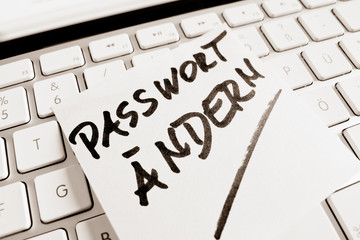 PASSWORT
ÄNDERN
5
6
T
G
F
V
Ü
Ö